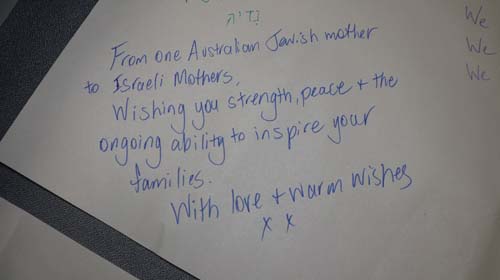 From one Australian Jewish mother
to Israeli Mothers.
Wishing you strength, peace + the
ongoing ability to inspire your
families.
With love + warm wishes
x x
We
We
We